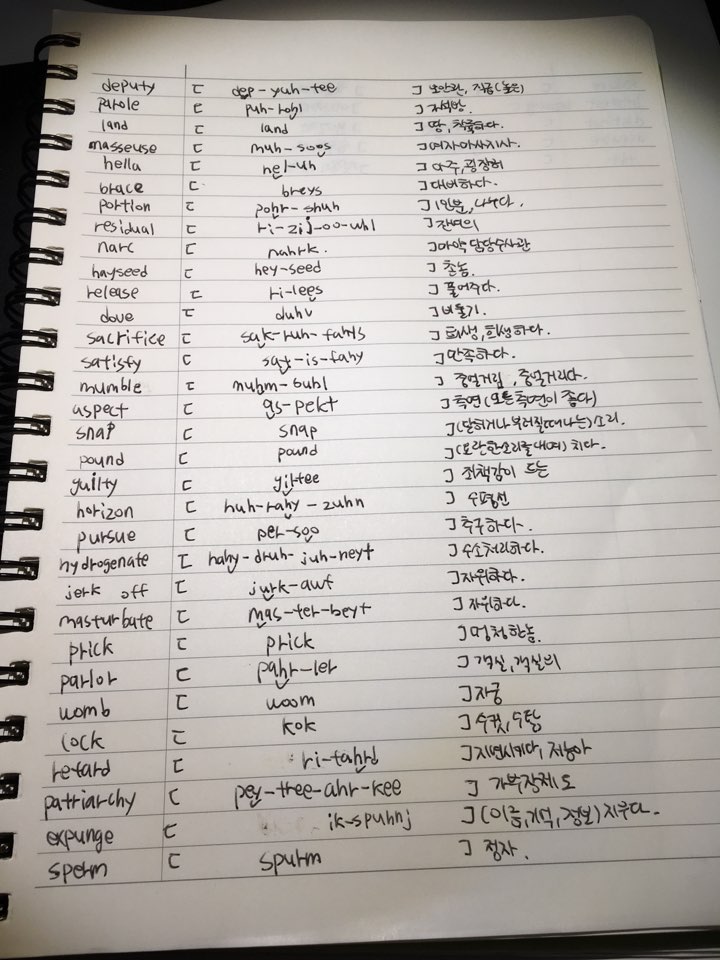 deputy [ dep-yuh-tee ] 보안관, 직급(높은)
parole [ puh-rohl ] 가석방.
land [ land ] 땅, 착륙하다.
masseuse [ muh-soos ] 여자 마사지사.
hella [ hel-uh ] 아주, 굉장히
brace [ breys ] 대비하다.
portion [ pohr-shuh ] 1인분, 나누다.
residual [ ri-zij-oo-uhl ] 잔여의
narc [ nahrk. ] 마약 담당수사관
hayseed [ hey-seed ] 촌놈.
release [ ri-lees ] 풀어주다.
dove [ duhv ] 비둘기.
sacrifice [ sak-ruh-fahys ] 희생, 희생하다.
satisfy [ sat-is-fahy ] 만족하다.
mumble [ muhm-buhl ] 중얼거림, 중얼거리다.
aspect [ as-pekt ] 측면(모든측면이 좋다)
snap [ snap ] (닫히거나 부러질때나는)소리.
pound [ pound ] (요란한소리를내며) 치다.
guilty [ gil-tee ] 죄책감이 드는
horizon [ huh-rahy-zuhn ] 수평선
pursue [ per-soo ] 추구하다.
hydrogenate [ hahy-druh-juh-neyt ] 수소처리하다.
jerk off [ jurk-awf ] 자위하다.
masturbate [ mas-ter-beyt ] 자위하다.
prick [ prick ] 멍청한놈.
parlor [ pahr-ler ] 객실, 객실의
womb [ woom ] 자궁
cock [ kok ] 수컷, 수탉
retard [ ri-tahrd ] 지연시키다, 저능아
patriarchy [ pey-tree-ahr-kee ] 가부장제도
expunge [ ik-spuhnj ] (이름,기억,정보)지우다.
sperm [ spurm ] 정자.